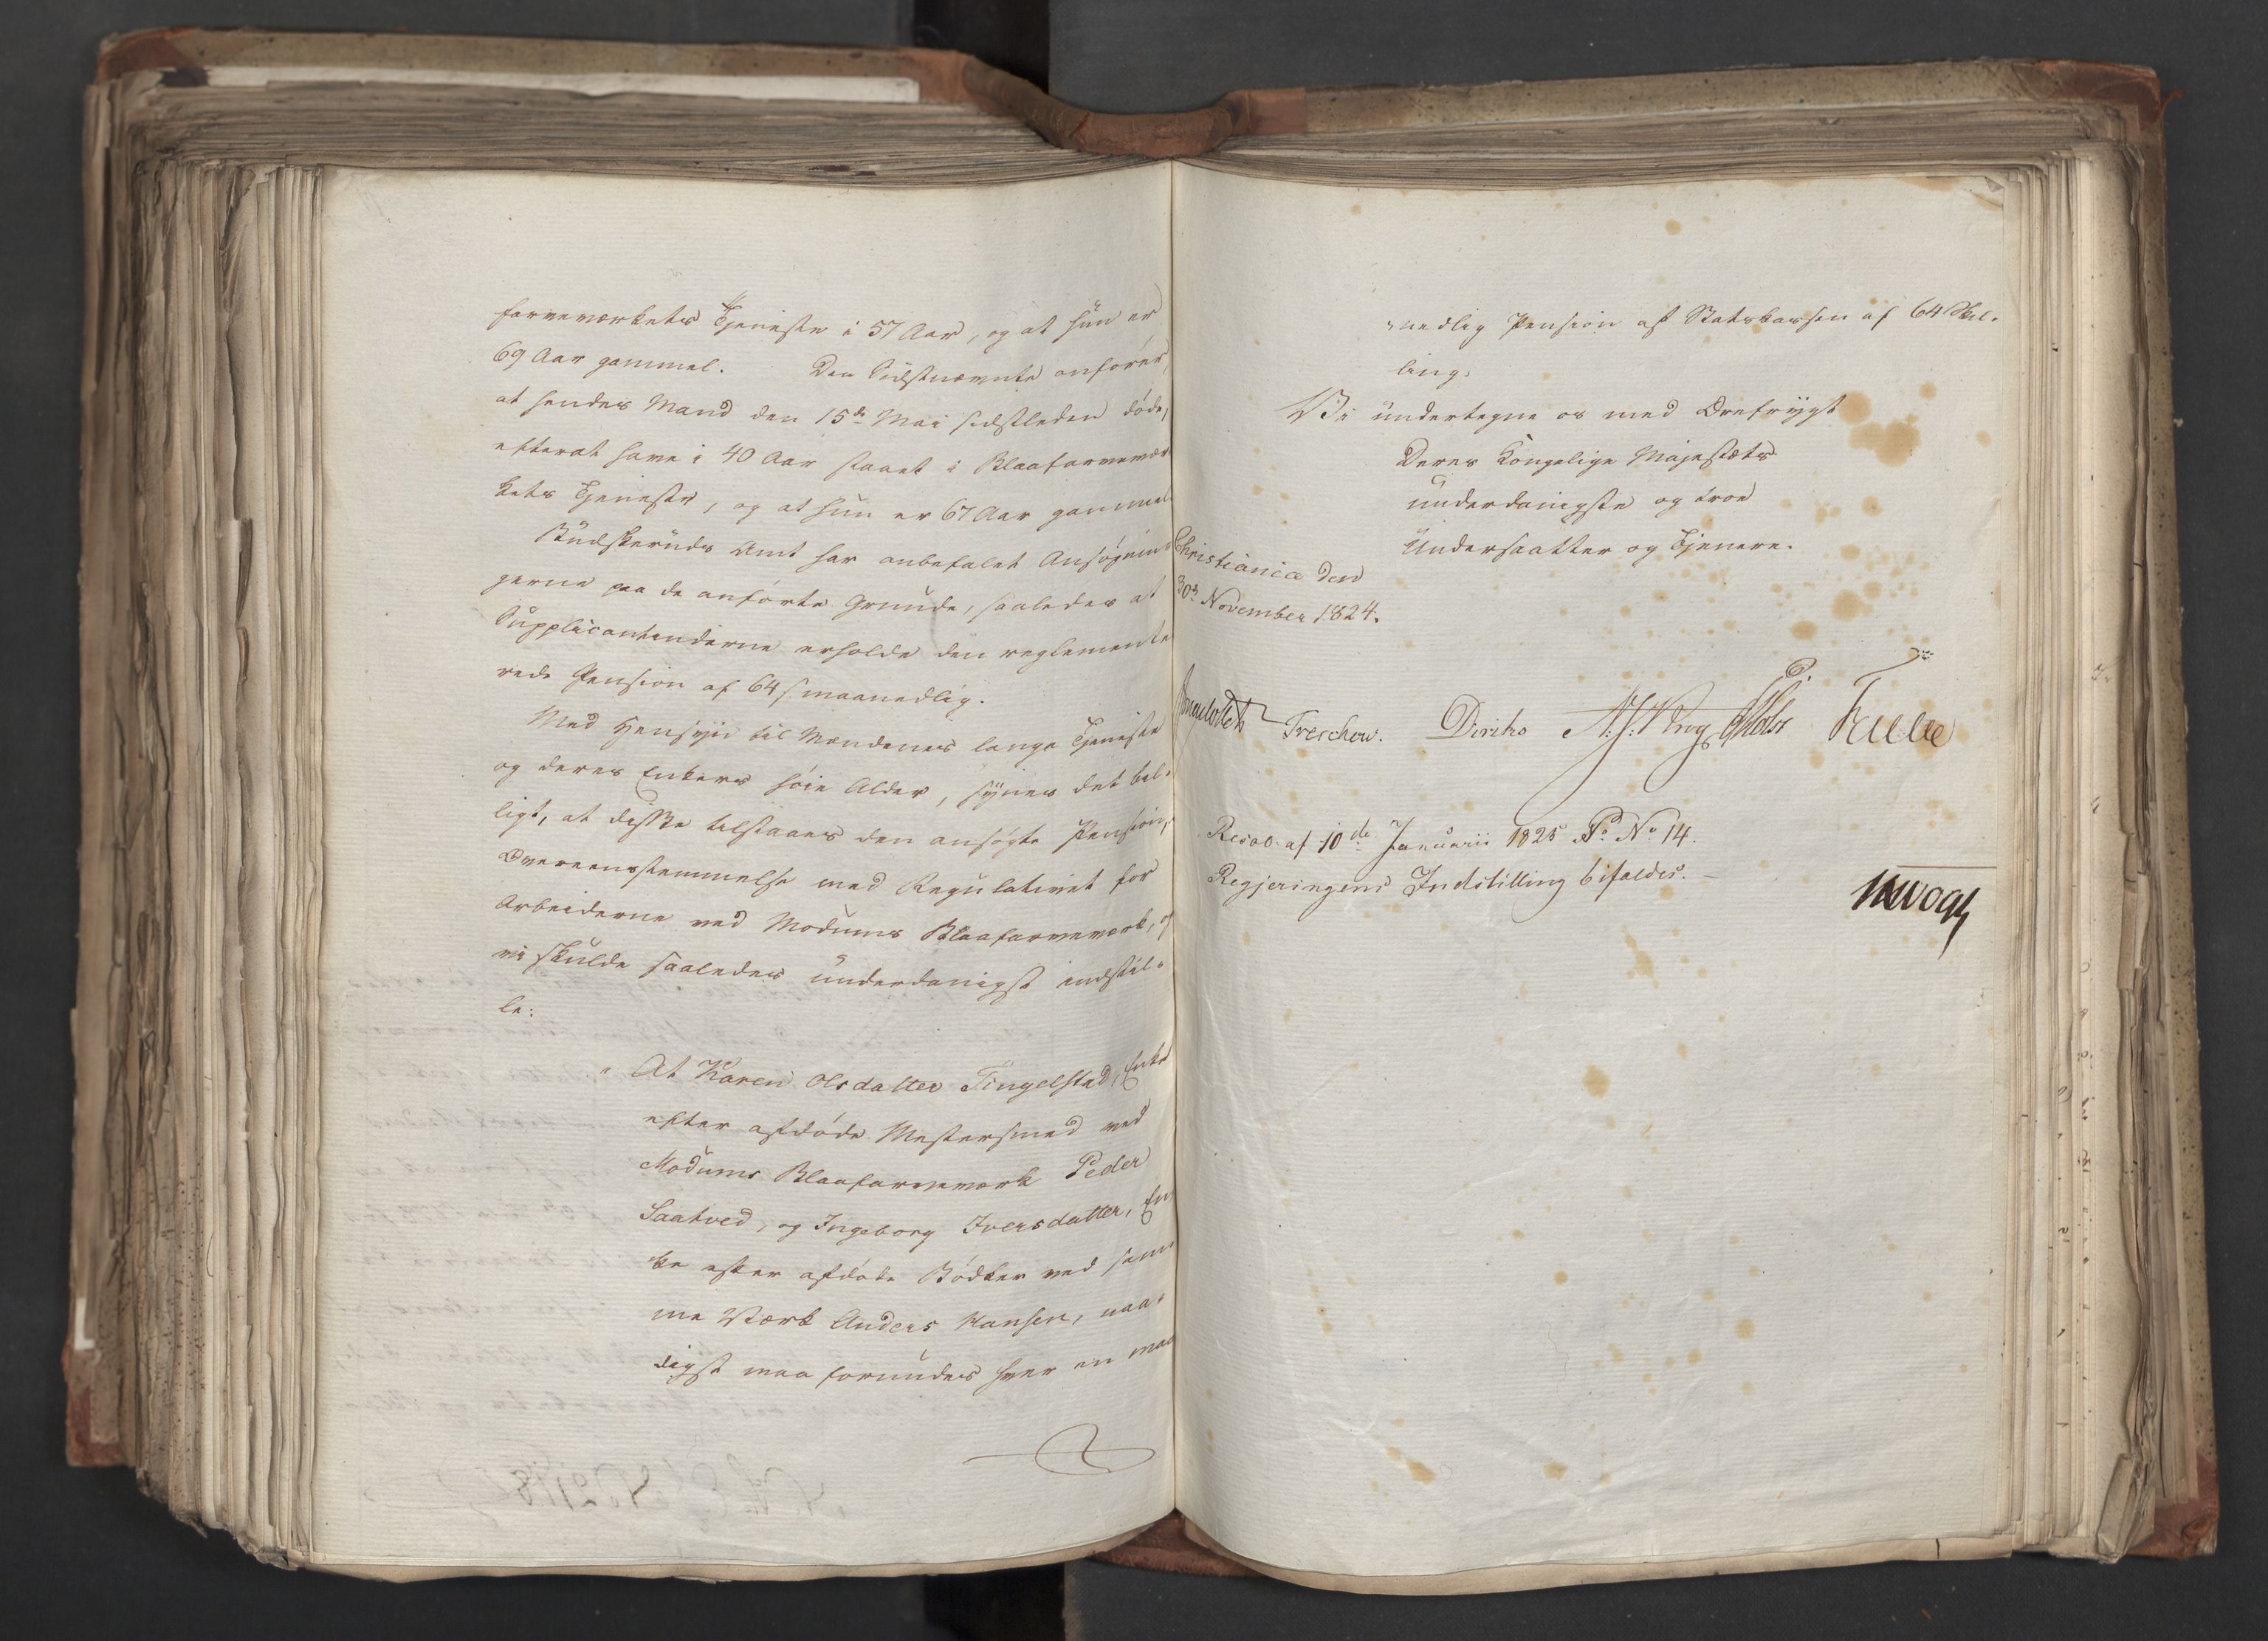 farveværkets Tjeneste i 57 Aar, og at hun er
69 Aar gammel. Den Sidstnævnte anfører,
at hendes Mand den 15de Mai sidstleden døde,
efterat have i 40 Aar staaet i Blaafarvevær
kets Tjeneste, og at hun er 67 Aar gammel
Budskeruds Amt har anbefalet Ansøgnin-
gerne paa de anførte Grunde, saaledes at
Supplicantinderne erholde den reglemente
rede Pension af 64 s maanedlig.
Med Hensyn til Mændenes lange Tjeneste
og deres Enkers høie Alder, synes det bil-
ligt, at disse tilstaaes den ansøgte Pension,
Overeensstemmelse med Regulativet for
Arbeiderne ved Modums Blaafarveværk, og
vi skulde saaledes underdanigst indstil-
le:
" At Karen Olsdatter Tingelstad, Enke
efter afdøde Mestersmed ved
Modums Blaafarveværk Peder
Saatved, og Ingeborg Iversdatter, En
ke efter afdøde Bødker ved sam-
me Værk Anders Hansen, naa-
digst maa forundes hver en maa
nedlig Pension af Statskassen af 64 Skil-
ling.
Vi undertegne os med Ærefrygt
Deres Kongelige Majestæts
underdanigste og troe
Undersaatter og Tjenere.
Christiania den
30te November 1824.
Treschow. Diriks Krog
Resol. af 10de Januarii 1825 No 14.
Regjeringens Indstilling bifaldes.